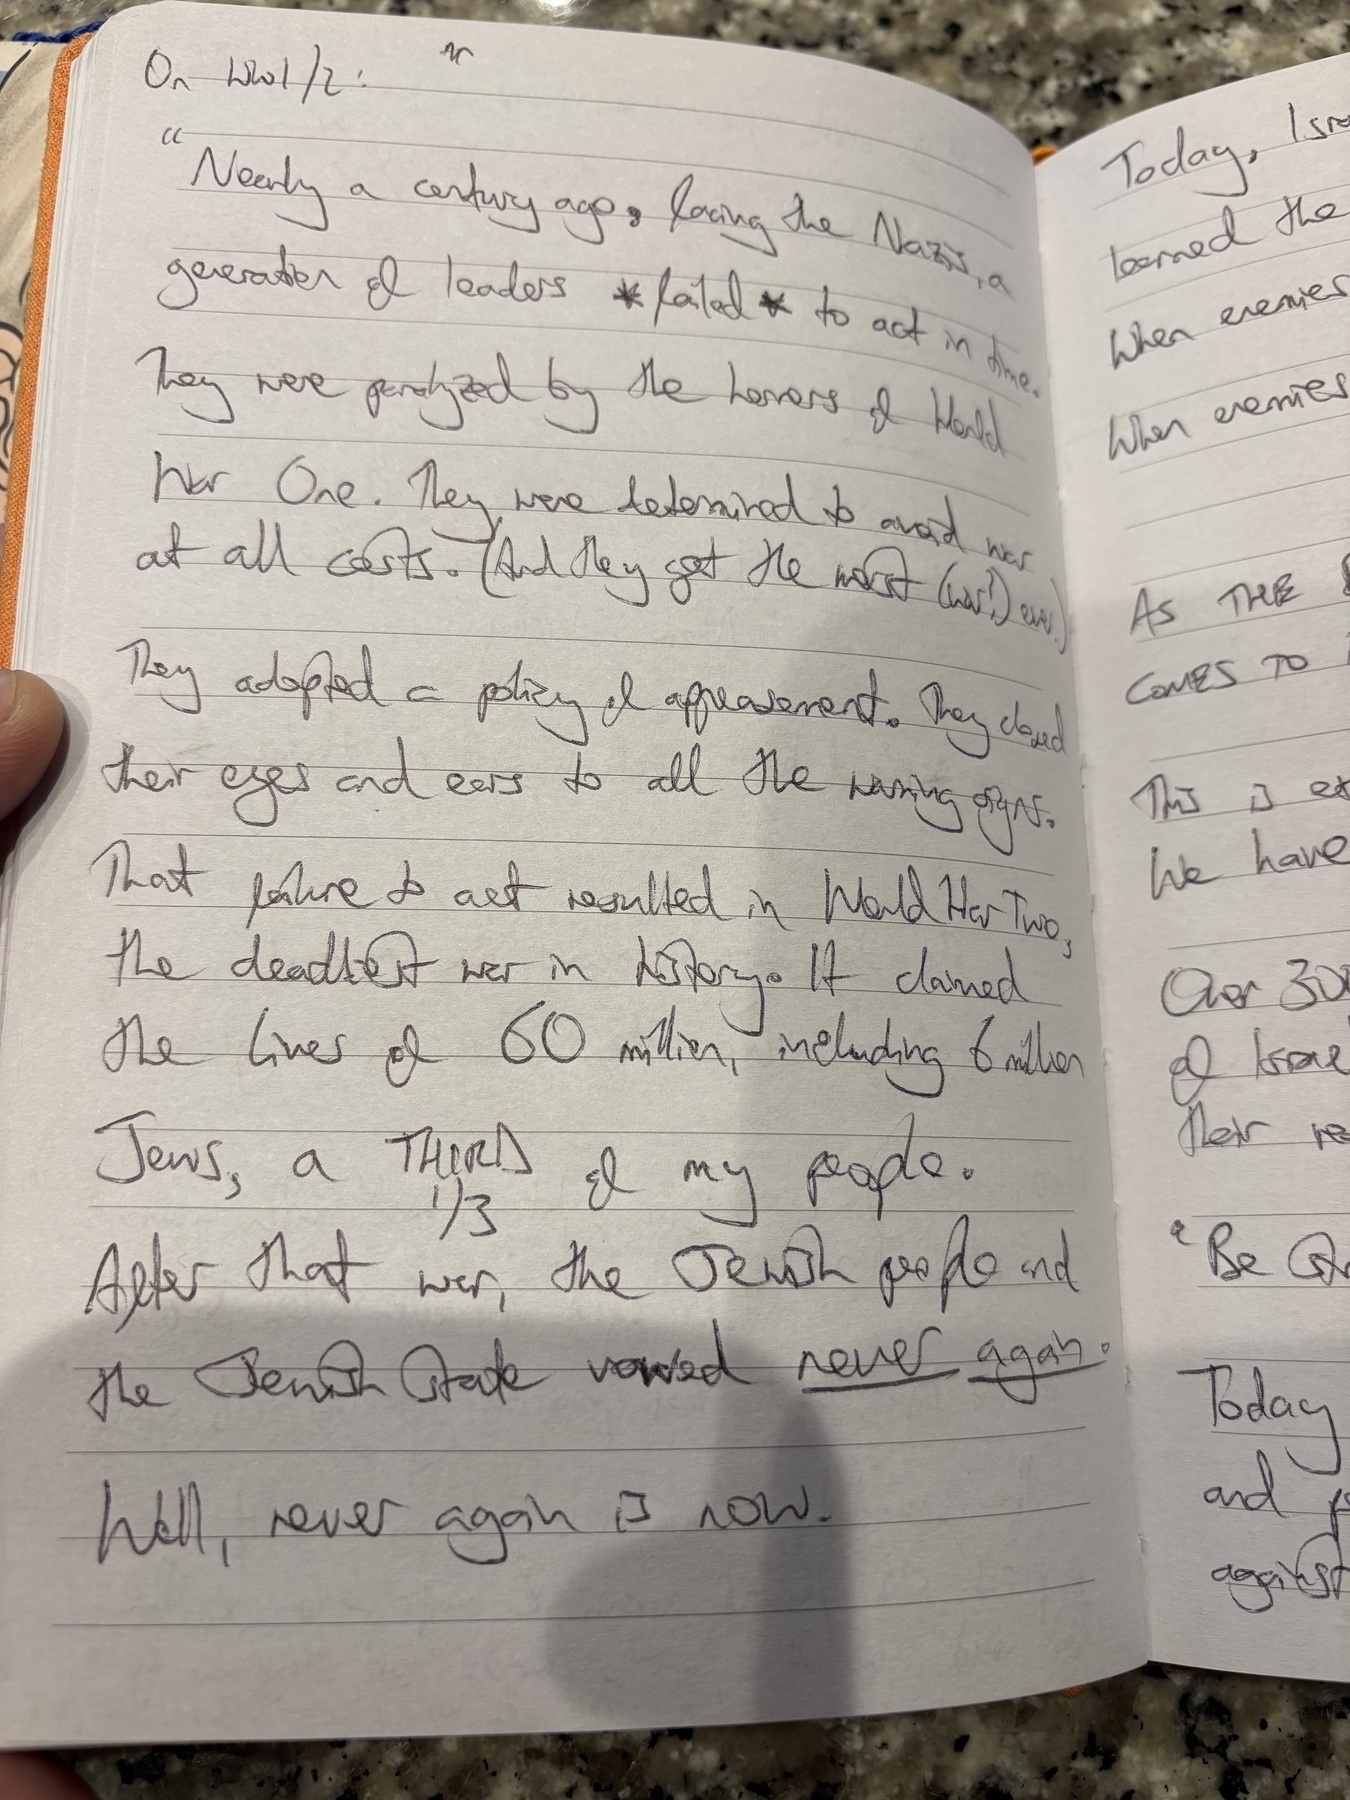 On WW1/2:
"Nearly a century ago, facing the Nazis, a
generation of leaders *failed* to act in time.
They were paralyzed by the horrors of World
War One. They were determined to avoid war
at all costs. (And they got the worst (war!) ever.)
They adopted a policy of appeasement. They closed
their eyes and ears to all the warning signs.
That failure to act resulted in World War Two,
the deadliest war in history. It claimed
the lives of 60 million, including 6 million
Jews, a THIRD of my people.
1/3
After that war, the Jewish people and
the Jewish State vowed never again.
Well, never again is now.
Today, Isra
learned the
When enemies
When enemies
AS THE
COMES TO
This is ex
We have
Over 300
of Israel
their re
"Be
Today
and
against